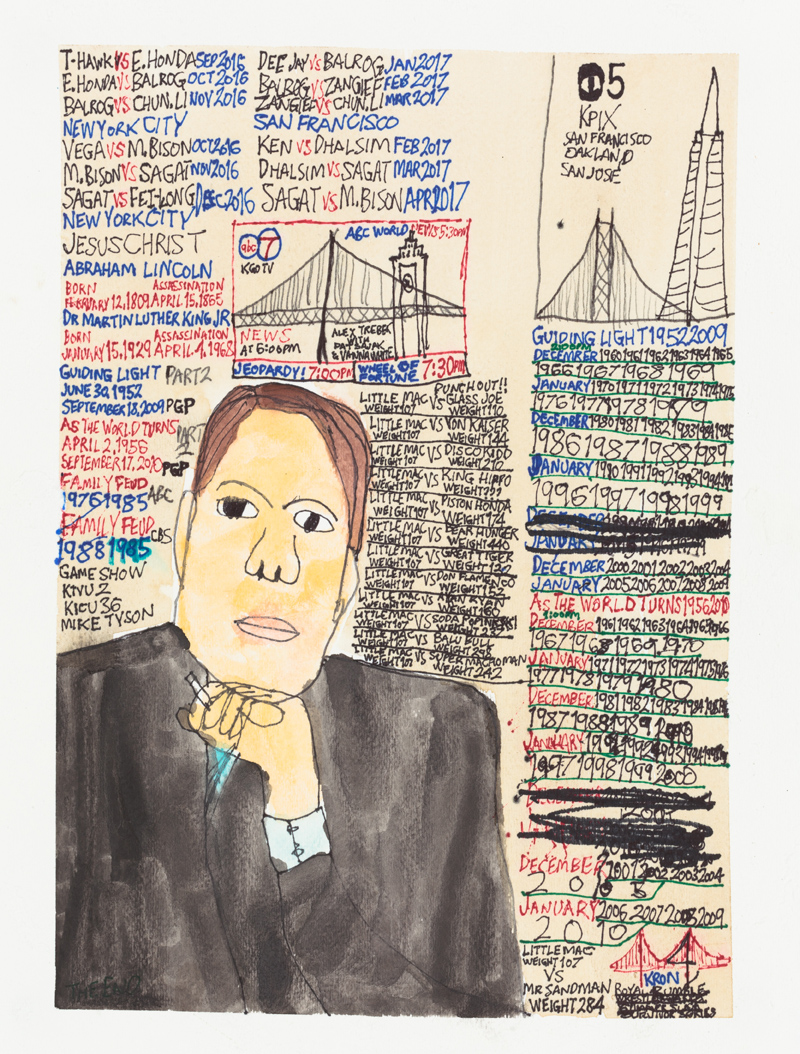 T-HAWK VS E.HONDA SEP 2016
E.HONDA VS BALROG OCT 2016
BALROG VS CHUN.LI NOV 2016
NEW YORK CITY
VEGA VS M.BISON OCT 2016
M.BISON VS SAGAT NOV 2016
SAGAT VS FEI-LONG DEC 2016
NEW YORK CITY
JESUS CHRIST
ABRAHAM LINCOLN
BORN ASSASSINATION
FEBRUARY 12, 1809 APRIL 15, 1865
DR MARTIN LUTHER KING, JR
BORN ASSASSINATION
JANUARY 15, 1929 APRIL 4, 1968
GUIDING LIGHT PART 2
JUNE 30, 1952
SEPTEMBER 18, 2009 PGP
AS THE WORLD TURNS PART
APRIL 2, 1956
SEPTEMBER 17, 2010 PGP
FAMILY FEUD
1976 1985 ABC
FAMILY FEUD CBS
1988 1985
GAME SHOW
KTVU 2
KICU 36
MIKE TYSON
DEE JAY VS BALROG JAN 2017
BALROG VS ZANGIEF FEB 2017
ZANGIEF VS CHUN.LI MAR 2017
SAN FRANCISCO
KEN VS DHALSIM FEB 2017
DHALSIM VS SAGAT MAR 2017
SAGAT VS M.BISON APR 2017
abc 7
KGO TV
ABC WORLD NEWS 5:30PM
NEWS
AT 6:00PM
ALEX TREBEK
WITH
PAT SAJAK
& VANNA WHITE
JEOPARDY! 7:00PM
WHEEL OF
FORTUNE 7:30PM
PUNCH OUT!!
LITTLE MAC VS GLASS JOE
WEIGHT 107 WEIGHT 110
LITTLE MAC VS VON KAISER
WEIGHT 107 WEIGHT 144
LITTLE MAC VS DISCO KID
WEIGHT 107 WEIGHT 210
LITTLE MAC VS KING HIPPO
WEIGHT 107 WEIGHT
LITTLE MAC VS PISTON HONDA
WEIGHT 107 WEIGHT 174
LITTLE MAC VS BEAR HUGGER
WEIGHT 107 WEIGHT 440
LITTLE MAC VS GREAT TIGER
WEIGHT 107 WEIGHT 132
LITTLE MAC VS DON FLAMENCO
WEIGHT 107 WEIGHT 152
LITTLE MAC VS
WEIGHT 107 WEIGHT
LITTLE MAC VS SODA POPINSKI
WEIGHT 107 WEIGHT 237
LITTLE MAC VS BALD BULL
WEIGHT 107 WEIGHT 298
LITTLE MAC VS SUPER MACHO MAN
WEIGHT 107 WEIGHT 242
5
KPIX
SAN FRANCISCO
OAKLAND
SAN JOSE
GUIDING LIGHT 1952 2009
2:00PM
DECEMBER 1960 1961 1962 1963 1964 1965
1966 1967 1968 1969
JANUARY 1970 1971 1972 1973 1974 1975
1976 1977 1978 1979
DECEMBER 1980 1981 1982 1983 1984 1985
1986 1987 1988 1989
JANUARY 1990 1991 1992 1993 1994 1995
1996 1997 1998 1999
DECEMBER
JANUARY
DECEMBER 2000 2001 2002 2003 2004
JANUARY 2005 2006 2007 2008 2009
AS THE WORLD TURNS 1956 2010
1:00PM
DECEMBER 1961 1962 1963 1964 1965 1966
1967 1968 1969 1970
JANUARY 1971 1972 1973 1974 1975 1976
1977 1978 1979 1980
DECEMBER 1981 1982 1983 1984 1985 1986
1987 1988 1989 1990
JANUARY 1991 1992 1993 1994 1995 1996
1997 1998 1999 2000
DECEMBER 2001 2002 2003 2004
2005
JANUARY 2006 2007 2008 2009
2010
LITTLE MAC
WEIGHT 107
VS
MR SANDMAN
WEIGHT 284
4
KRON
ROYAL RUMBLE
SURVIVOR SERIES